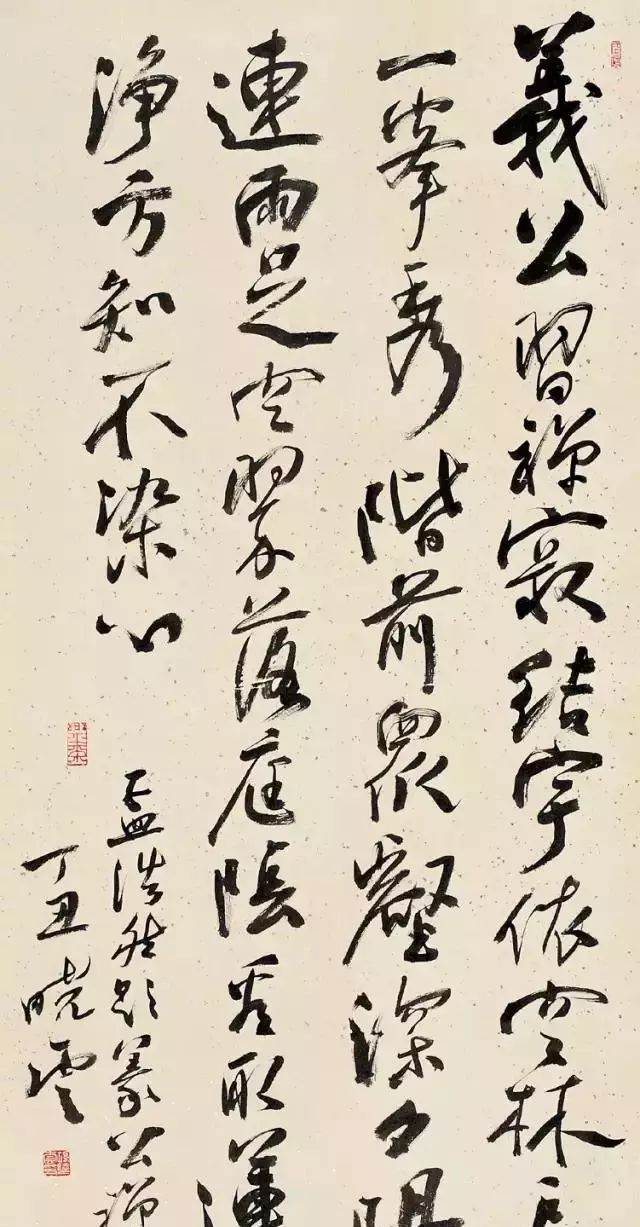 義公習禪寂結宇依空林
一峯秀階前眾壑深夕陽
連雨足空翠落庭陰看取蓮
淨方知不染心
孟浩然題義公禪
丁丑曉雲